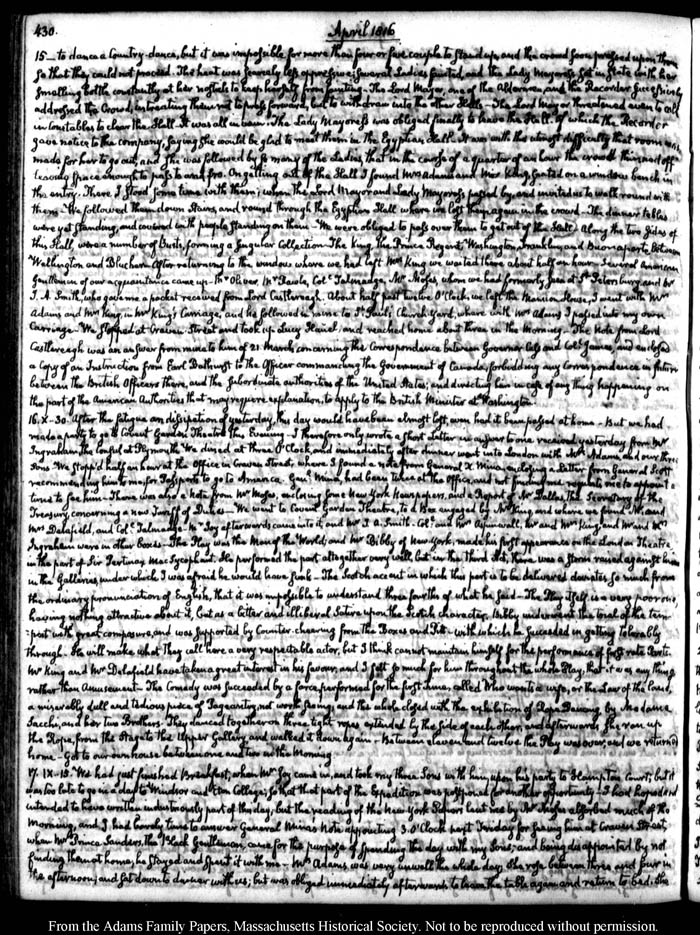 430. April 1816
15— to dance a Country-dance, but it was impossible for more than four or five couple to stand up, and the crowd soon pressed upon them
so that they could not proceed. The heat was scarcely less oppressive; several Ladies fainted, and the Lady Mayoress sat in State with her
smelling bottle constantly at her nostrils to keep herself from fainting. The Lord Mayor, one of the Aldermen, and the Recorder successively
addressed the Crowd, intreating them not to press forward, but to withdraw into the other Halls— The Lord Mayor threatened even to call
in Constables to clear the Hall. It was all in vain. The Lady Mayoress was obliged finally to leave the Hall. Of which the Recorder
gave notice to the company, saying she would be glad to meet them in the Egyptian Hall. It was with the utmost difficulty that room was
made for her to go out, and she was followed by so many of the Ladies, that in the course of a quarter of an hour the crowd thinned off
leaving space enough to pass to and fro. On getting out of the Hall I found Mrs Adams and Miss King, seated on a window bench in
the entry. There I stood some time with them; when the Lord Mayor and Lady Mayoress passed by, and invited us to walk round with
them— We followed them down Stairs, and round through the Egyptian Hall where we lost them again in the crowd— The dinner tables
were yet standing, and covered with people standing on them— We were obliged to pass over them to get out of the Hall. Along the two sides of
this Hall, were a number of Busts, forming a singular Collection— The King, the Prince Regent, Washington, Franklin, and Buonaparte, between
Wellington and Blucher. After returning to the window where we had left Mrs King we waited there about half an hour. Several American
Gentlemen of our acquaintance came up— Mr Oliver, Mr Searle, Coll. Talmadge, Mr Moses whom we had formerly seen at St. Petersburg, and Mr
J. A. Smith, who gave me a packet received from Lord Castlereagh. About half past twelve O'Clock, we left the Mansion House, I went with Mrs
Adams and Mrs King, in Mr King's Carriage, and he followed in mine to St. Paul's Church Yard, where with Mrs Adams I passed into my own
Carriage— We stopped at Craven Street and took up Lucy Houel, and reached home about three in the Morning— The Note from Lord
Castlereagh was an answer from mine to him of 21 March, concerning the Correspondence between Governor Cass and Coll. James, and enclosed
a Copy of an Instruction from Earl Bathurst to the Officer commanding the Government of Canada, forbidding any Correspondence in future
between the British Officers there, and the subordinate authorities of the United States; and directing him in case of any thing happening on
the part of the American Authorities that may require explanation, to apply to the British Minister at Washington.
16. X-30. After the fatigue and dissipation of yesterday, this day would have been almost lost, even had it been passed at home— But we had
made a party to go to Covent Garden Theatre this Evening— I therefore only wrote a short Letter in answer to one received yesterday from Mr
Ingraham the Consul at Plymouth. We dined at three O'Clock, and immediately after dinner went into London with Mrs Adams, and our three
Sons. We stopp'd half an hour at the Office in Craven Street, where I found a note from General X Mina, enclosing a Letter from General Scott
recommending him to me, for Passports to go to America. Genl. Mina, had been twice at the Office, and not finding me requests me to appoint a
time to see him— There was also a Note from Mr Moses, enclosing some New York Newspapers, and a Report of Mr Dallas, the Secretary of the
Treasury, concerning a new Tariff of Duties— We went to Covent Garden Theatre, to a Box engaged by Mr King, and where we found Mr and
Mrs Delafield, and Coll. Talmadge. Mr Joy afterwards came into it, and Mr J. A. Smith. Coll. and Mrs Aspinwall, Mr and Mrs King, and Mr and Mrs
Ingraham were in other Boxes— The Play was the Man of the World; and Mr Bibby of New York, made his first appearance on the London Theatre
in the part of Sir Pertinax MacSycophant. He performed the part altogether very well, but in the third Act, there was a storm raised against him
in the Galleries, under which I was afraid he would have sunk— The Scotch accent in which this part is to be delivered deviates so much from
the ordinary pronunciation of English, that it was impossible to understand three fourths of what he said— The Play itself is a very poor one
having nothing attractive about it, but as a bitter and illiberal Satire upon the Scotch character. Bibby underwent the trial of the tem-
-pest with great composure, and was supported by Counter-cheering from the Boxes and Pitt— with which he succeeded in getting tolerably
through— He will make what they call here a very respectable actor, but I think cannot maintain himself for the performance of first rate Parts.
Mr King and Mr Delafield have taken a great interest in his favour, and I felt so much for him throughout the whole Play, that it was any thing
rather than amusement— The Comedy was succeeded by a farce, performed for the first time, called Who wants a wife, or the Law of the Land,
a miserably dull and tedious piece of Pageantry, not work seeing, and the whole closed with the exhibition of Rope Dancing by Madame
Sacchi, and her two Brothers. They danced together on three tight ropes extended by the side of each other, and afterwards She ran up
the Rope, from the Stage to the Upper Gallery, and walked it down again— Between eleven and twelve the Play was over, and we returned
home— Got to our own house between one and two in the Morning.
17. IX-15. We had just finished Breakfast, when Mr Joy came in, and took my three Sons with him, upon his party to Hampton Court; but it
was too late to go in a day to Windsor and Eton College; so that that part of the Expedition was postponed for another opportunity— I had hoped and
intended to have written industriously part of the day, but the reading of the New York Papers lent me by Mr Moses absorbed much of the
Morning, and I had barely time to answer General Mina's Note appointing 3. O'Clock next Friday for seeing him at Craven Street
when Mr Prince Saunders, the black Gentleman, came for the purpose of spending the day with my Sons; and being disappointed by not
finding them at home, he stayed and spent it with me— Mrs Adams was very unwell the whole day. She rose between three and four in
the afternoon, and sat down to dinner with us; but was obliged immediately afterwards to leave the table again and return to bed. She
From the Adams Family Papers, Massachusetts Historical Society. Not to be reproduced without permission.